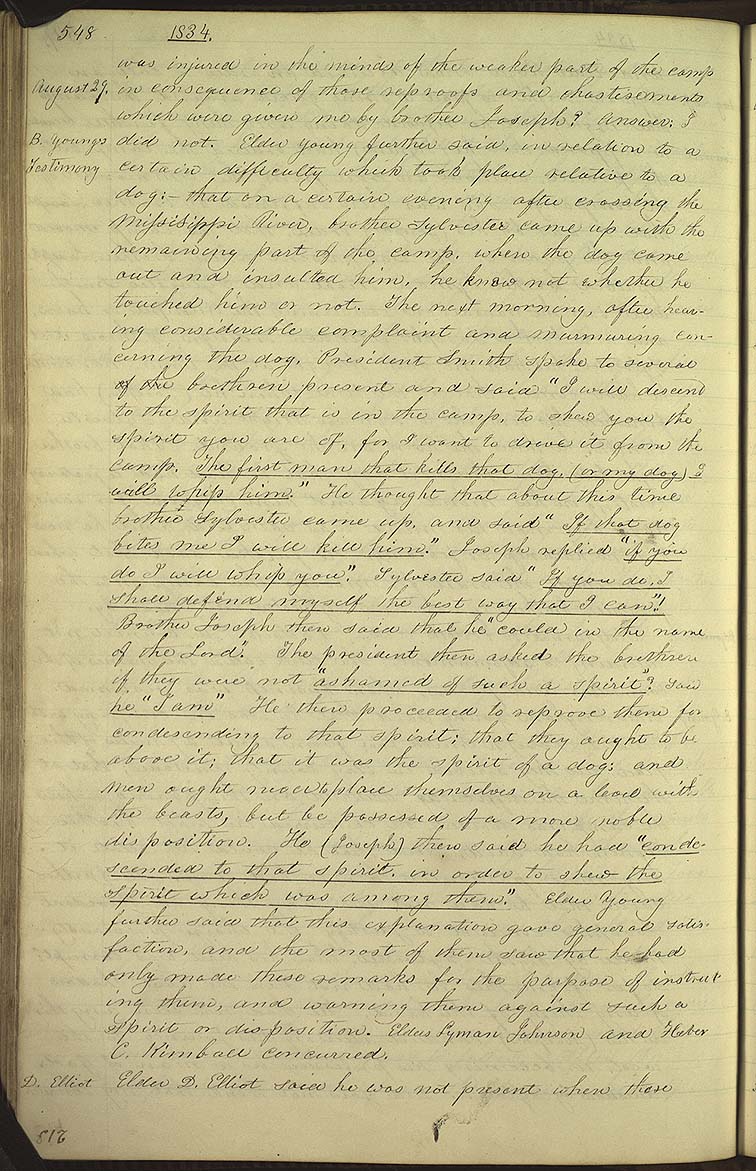 548 1834.
was injured in the minds of the weaker part of the camp
August 29. in consequence of those reproofs and chastisements
which were given me by brother Joseph? answer; I
B. Young's did not. Elder Young further said, in relation to a
Testimony certain difficulty which took place relative to a
dog:— that on a certain evening after crossing the
Missisippi River, brother Sylvester came up with the
remaining part of the camp, when the dog came
out and insulted him, he know not whether he
touched him or not. The next morning, after hear-
ing considerable complaint and murmuring con-
cerning the dog, President Smith spake to several
of the brethren present and said "I will descend
to the spirit that is in the camp, to shew you the
spirit you are of, for I want to drive it from the
camp. The first man that kills that dog, (or my dog) I
will whip him." He thought that about this time
brother Sylvester came up, and said "If that dog
bites me I will kill him." Joseph replied "if you
do I will whip you". Sylvester said "If you do, I
shall defend myself the best way that I can"!
Brother Joseph then said that he "could in the name
of the Lord". The president then asked the brethren
if they were not "ashamed of such a spirit"? said
he "I am" He then proceeded to reprove them for
condescending to that spirit; that they ought to be
above it; that it was the spirit of a dog; and
men ought never to place themselves on a level with
the beasts, but be possessed of a more noble
disposition. He (Joseph) then said he had "conde-
scended to that spirit, in order to shew the
spirit which was among them." Elder Young
further said that this explanation gave general satis-
faction, and the most of them saw that he had
only made these remarks for the purpose of instruct
ing them, and warning them against such a
spirit or disposition. Elders Lyman Johnson and Heber
C. Kimball concurred.
D. Elliot Elder D. Elliot said he was not present when these
512